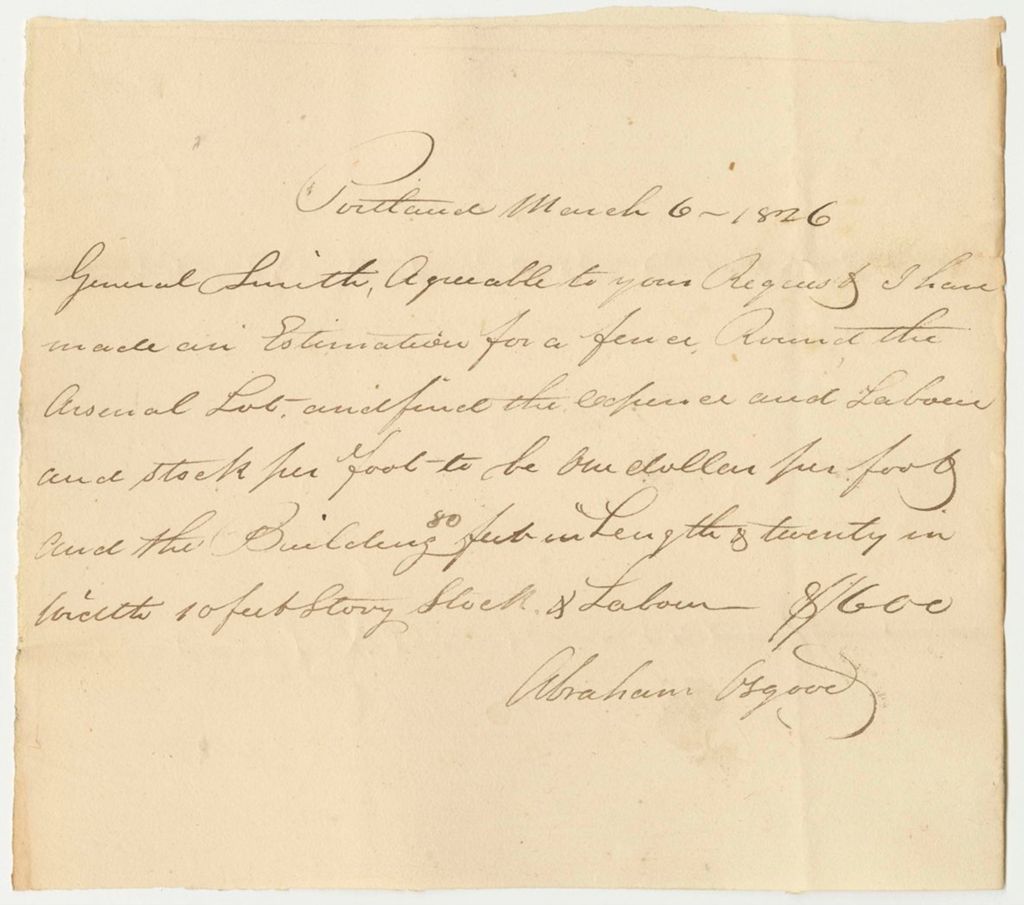 Portland March 6 - 1826
General Smith, Agreeable to your Request I have
made an Estimation for a fence, Round, the
Arsenal Lot. and find the expence and Labour
and stock per foot to be One dollar per foot
and the Building 80 feet in Length & twenty in
width 10 feet Story Stock & Labour — $600
Abraham Osgood